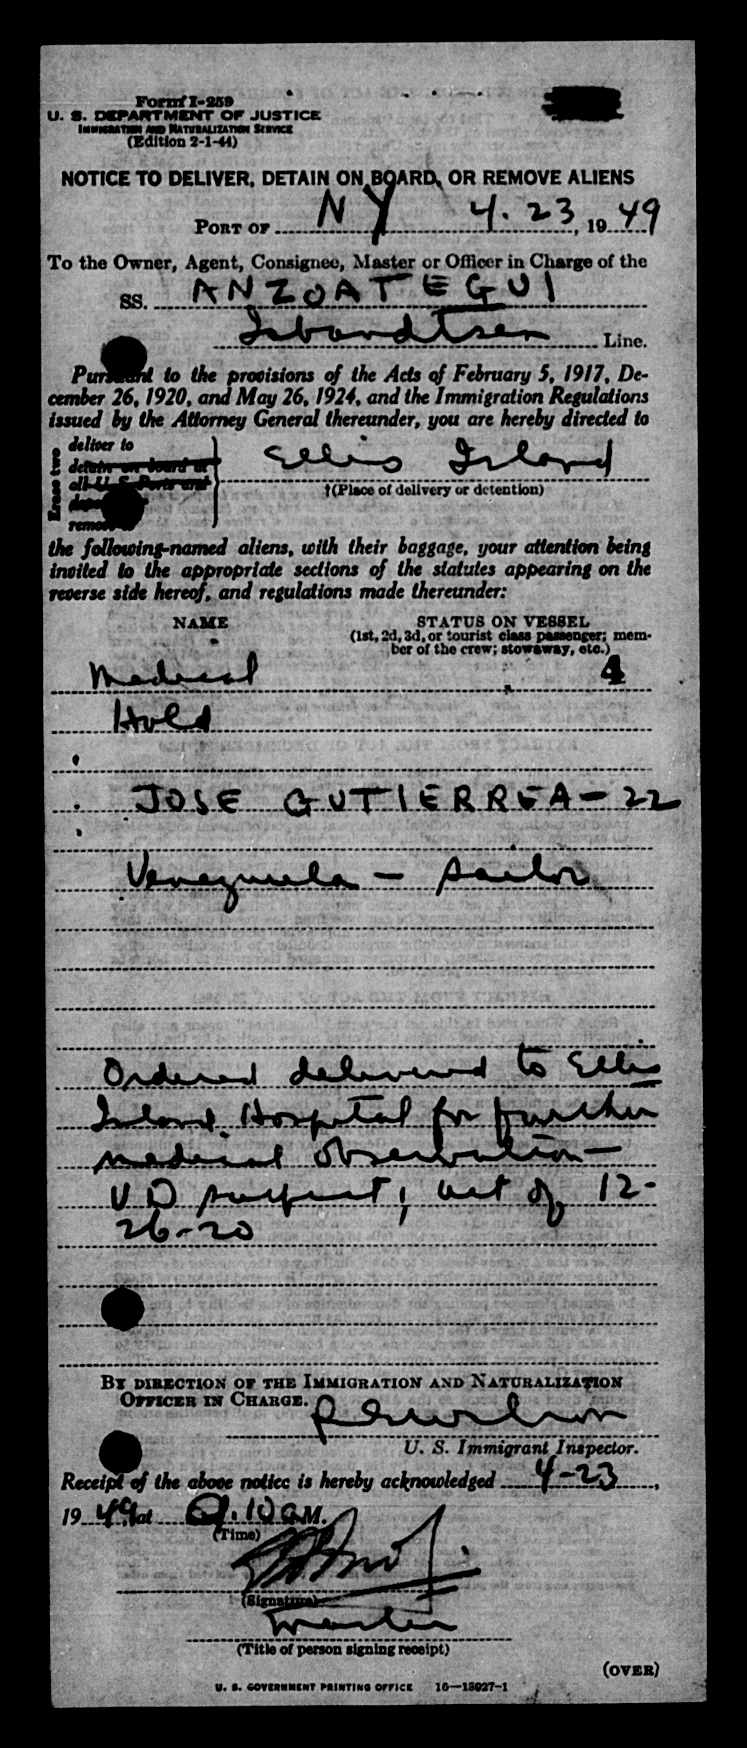 Form I-259
U. S. DEPARTMENT OF JUSTICE
IMMIGRATION AND NATURALIZATION SERVICE
(Edition 2-1-44)
NOTICE TO DELIVER, DETAIN ON BOARD, OR REMOVE ALIENS
PORT OF NY 4.23, 1949
To the Owner, Agent, Consignee, Master or Officer in Charge of the
SS. ANZOATEGUI
Isbandtsen Line.
Pursuant to the provisions of the Acts of February 5, 1917, De-
cember 26, 1920, and May 26, 1924, and the Immigration Regulations
issued by the Attorney General thereunder, you are hereby directed to
Erase two
deliver to
detain on board at
all U. S. Ports and
remove
Ellis Island
†(Place of delivery or detention)
the following-named aliens, with their baggage, your attention being
invited to the appropriate sections of the statutes appearing on the
reverse side hereof, and regulations made thereunder:
NAME STATUS ON VESSEL
(1st, 2d, 3d, or tourist class passenger; mem-
ber of the crew; stowaway, etc.)
Medical 4
Hold
JOSE GUTIERREA - 22
Venezuela - sailor
Ordered delivered to Ellis
Island Hospital for further
medical observation -
VD suspect, act of 12-
26-20
BY DIRECTION OF THE IMMIGRATION AND NATURALIZATION
OFFICER IN CHARGE.
U. S. Immigrant Inspector.
Receipt of the above notice is hereby acknowledged 4-23,
1949, at 10 A.M.
(Time)
(Signature)
Master
(Title of person signing receipt)
(OVER)
U. S. GOVERNMENT PRINTING OFFICE 16—13927-1